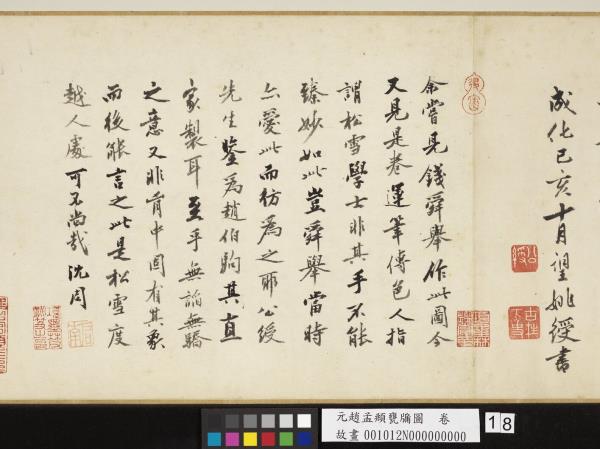 成化己亥十月望姚綬書
余嘗見錢舜舉作此圖今
又見是卷運筆傅色人指
謂松雪學士非其手不能
臻妙如此豈舜舉當時
亦愛此而彷為之耶公綬
先生鑒為趙伯駒其直
家製耳至乎無諂無驕
之意又非胷中固有其象
而後能言之此是松雪度
越人處可不尚哉沈周
元趙孟頫甕牖圖 卷
故畫001012N000000000
18